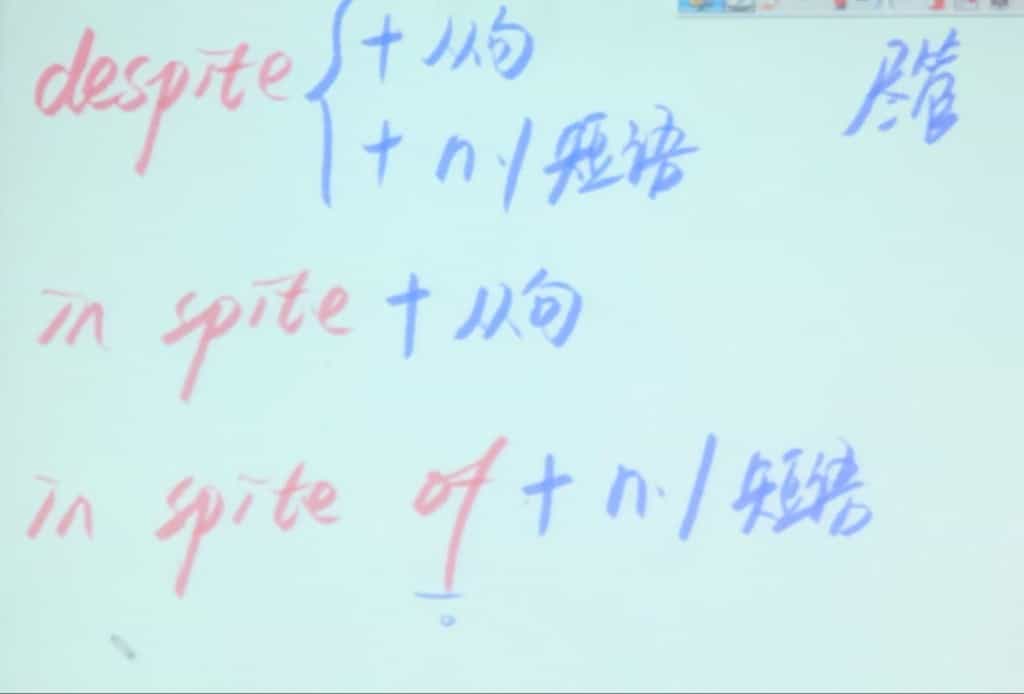 despite { + 从句 尽管
+ n. / 短语
in spite + 从句
in spite of + n. / 短语